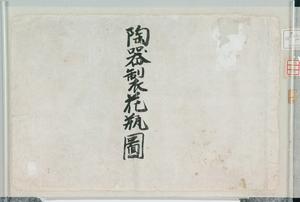 陶器製花瓶圖